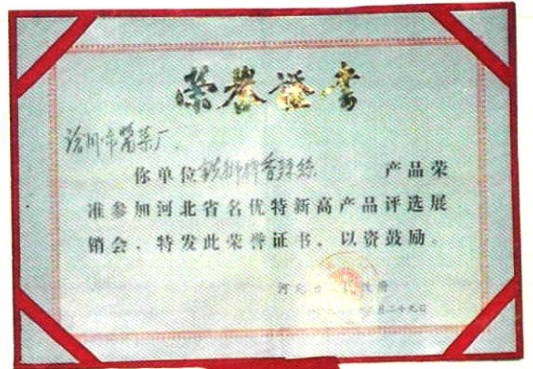 荣誉证书
沧州市酱菜厂
你单位铁狮牌香辣丝 产品荣
准参加河北省名优特新高产品评选展
销会,特发此荣誉证书,以资鼓励。
河北
月二十九日